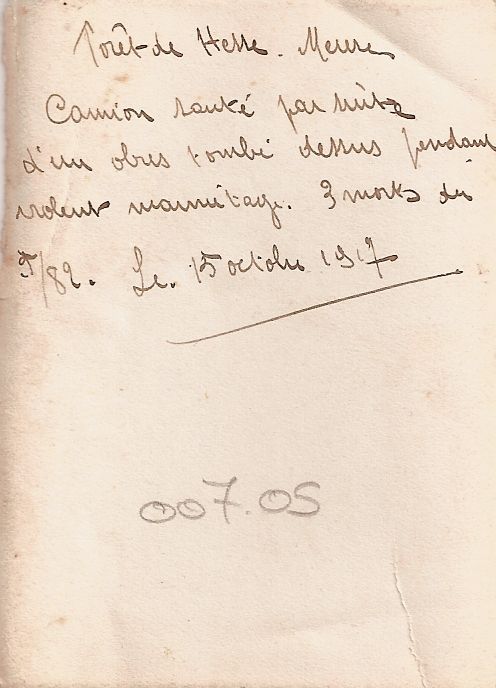 Forêt de Hesse. Meuse
Camion sauté par suite
d'un obus tombé dessus pendant
violent marmitage. 3 morts du
/82. Le. 15 octobre 1917
007.05